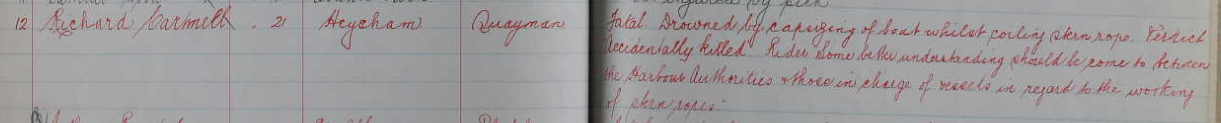 12 Richard Carmill . 21 Heycham Quayman Fatal Drowned by capsizing of boat whilst coiling stern rope. Verdict
Accidentally killed. Rider Some better understanding should be come to between
the Harbour Authorities & those in charge of vessels in regard to the working
of stern ropes.